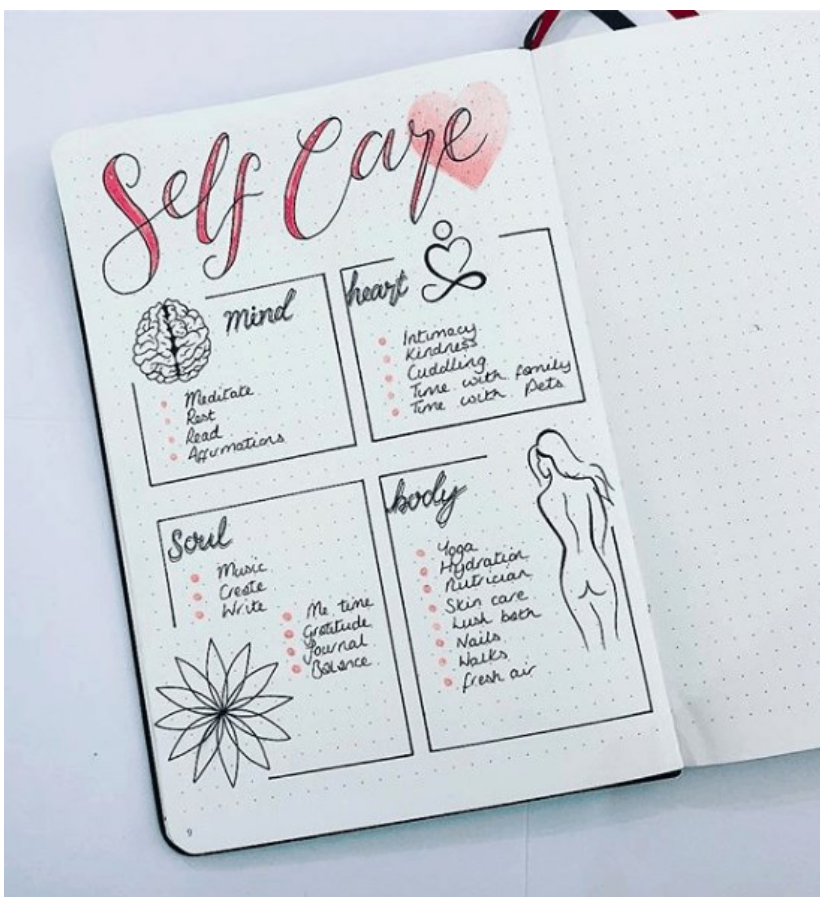 Self Care
mind
Meditate
Rest
Read
Affirmations
heart
Intimacy
Kindness
Cuddling
Time with family
Time with pets
Soul
Music
Create
Write
Me time
Gratitude
Journal
Balance
body
Yoga
Hydration
Nutrician
Skin care
Lush bath
Nails
Walks
fresh air
9